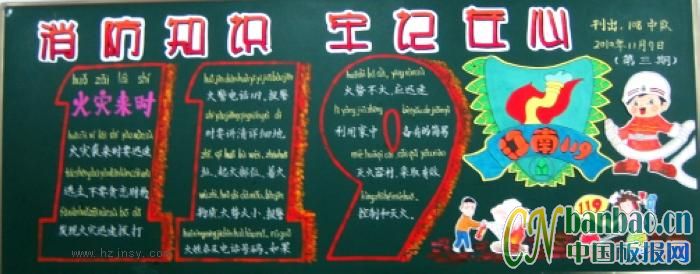 消防知识 牢记在心
刊出：108中队
2010年11月9日
（第三期）
huǒ zāi lái shí
火灾来时
火灾袭来时要迅速
逃生，不要贪恋财物
发现火灾迅速拨打
火警电话119。报警
时要讲清详细地
址、起火部位、着火
物质、火势大小、报警
人姓名及电话号码。如果
火势不大，应迅速
利用家中备有的简易
灭火器材，采取有效
控制和灭火。
江南119
119
CNbanbao.cn
中国板报网
www.hzjnsy.com